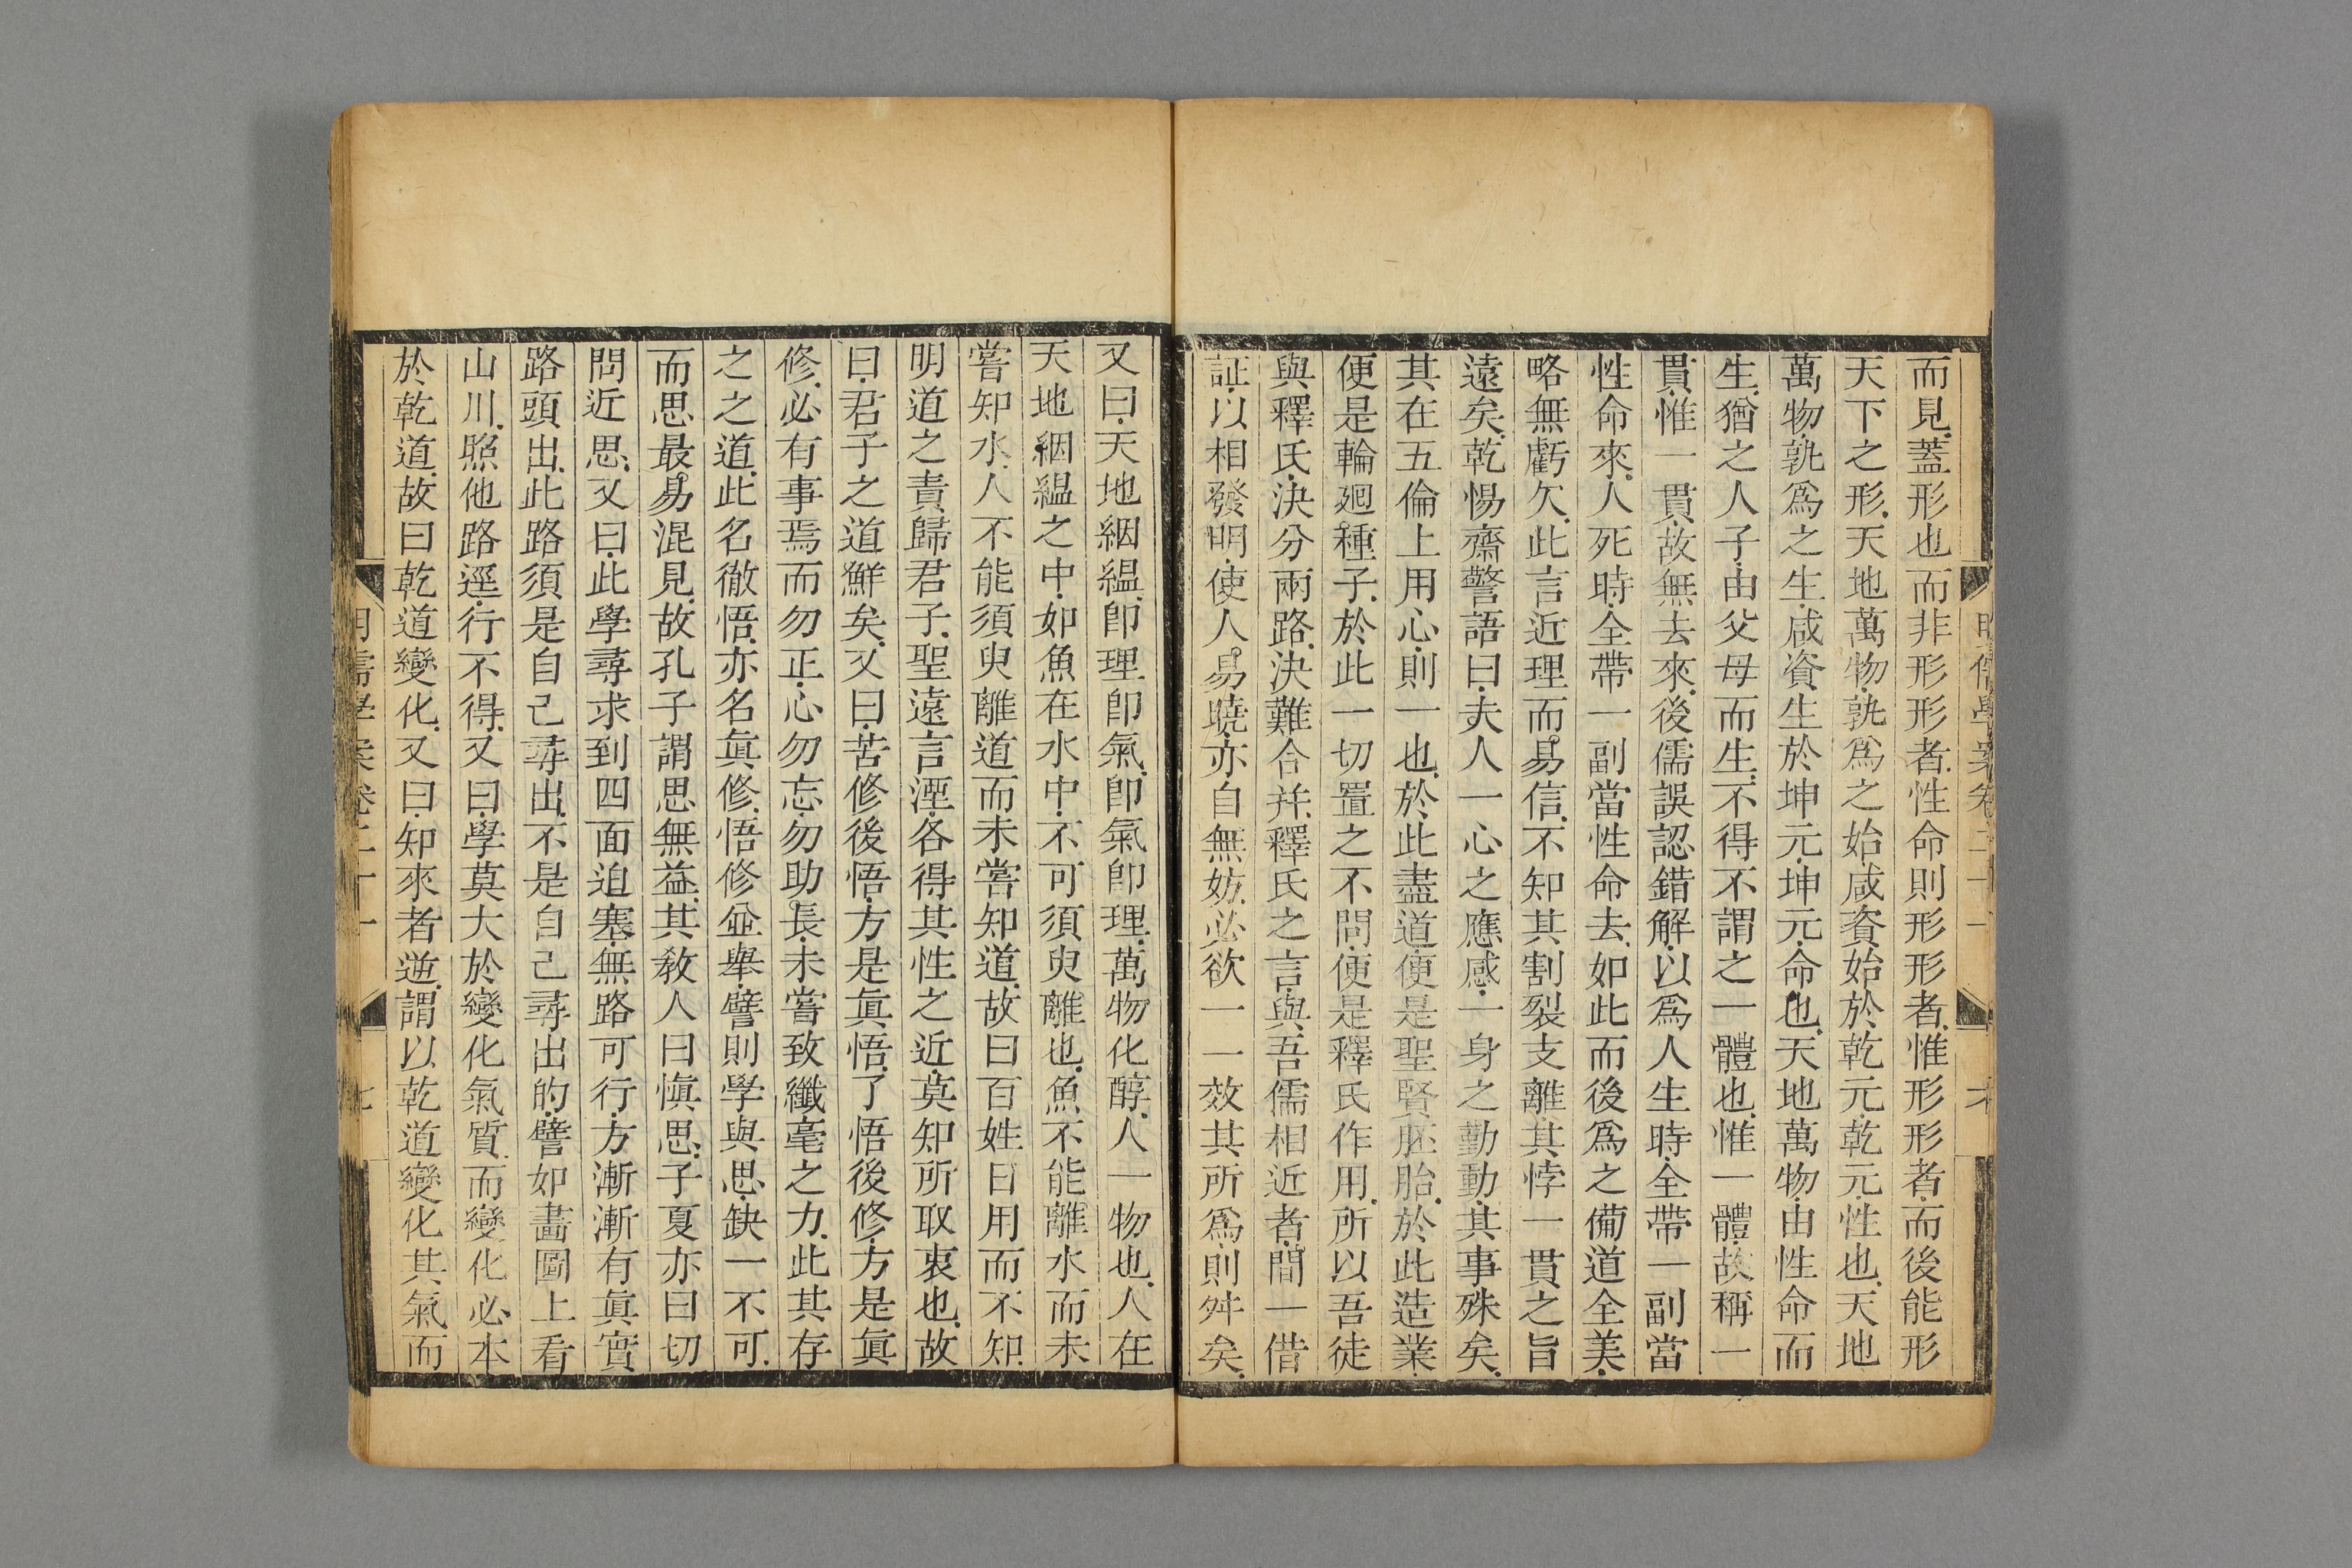 而見蓋形也而非形形者性命則形形者惟形形者而後能形
天下之形天地萬物孰爲之始咸資始於乾元乾元性也天地
萬物孰爲之生咸資生於坤元坤元命也天地萬物由性命而
生猶之人子由父母而生不得不謂之一體也惟一體故稱一
貫惟一貫故無去來後儒誤認錯解以爲人生時全帶一副當
性命來人死時全帶一副當性命去如此而後爲之備道全美
略無虧欠此言近理而易信不知其割裂支離其悖一貫之旨
遠矣乾惕齋警語曰夫人一心之應感一身之勤動其事殊矣
其在五倫上用心則一也於此盡道便是聖賢胚胎於此造業
便是輪迴種子於此一切置之不問便是釋氏作用所以吾徒
與釋氏決分兩路決難合并釋氏之言與吾儒相近者間一借
証以相發明使人易曉亦自無妨必欲一一效其所爲則舛矣
又曰天地絪縕卽理卽氣卽氣卽理萬物化醇人一物也人在
天地絪縕之中如魚在水中不可須臾離也魚不能離水而未
嘗知水人不能須臾離道而未嘗知道故曰百姓日用而不知
明道之責歸君子聖遠言湮各得其性之近莫知所取衷也故
曰君子之道鮮矣又曰苦修後悟方是眞悟了悟後修方是眞
修必有事焉而勿正心勿忘勿助長未嘗致纖毫之力此其存
之之道此名徹悟亦名眞修悟修並舉譬則學與思缺一不可
而思最易混見故孔子謂思無益其教人曰愼思子夏亦曰切
問近思又曰此學尋求到四面迫塞無路可行方漸漸有眞實
路頭出此路須是自己尋出不是自己尋出的譬如畵圖上看
山川照他路逕行不得又曰學莫大於變化氣質而變化必本
於乾道故曰乾道變化又曰知來者逆謂以乾道變化其氣而
明儒學案卷二十一
七